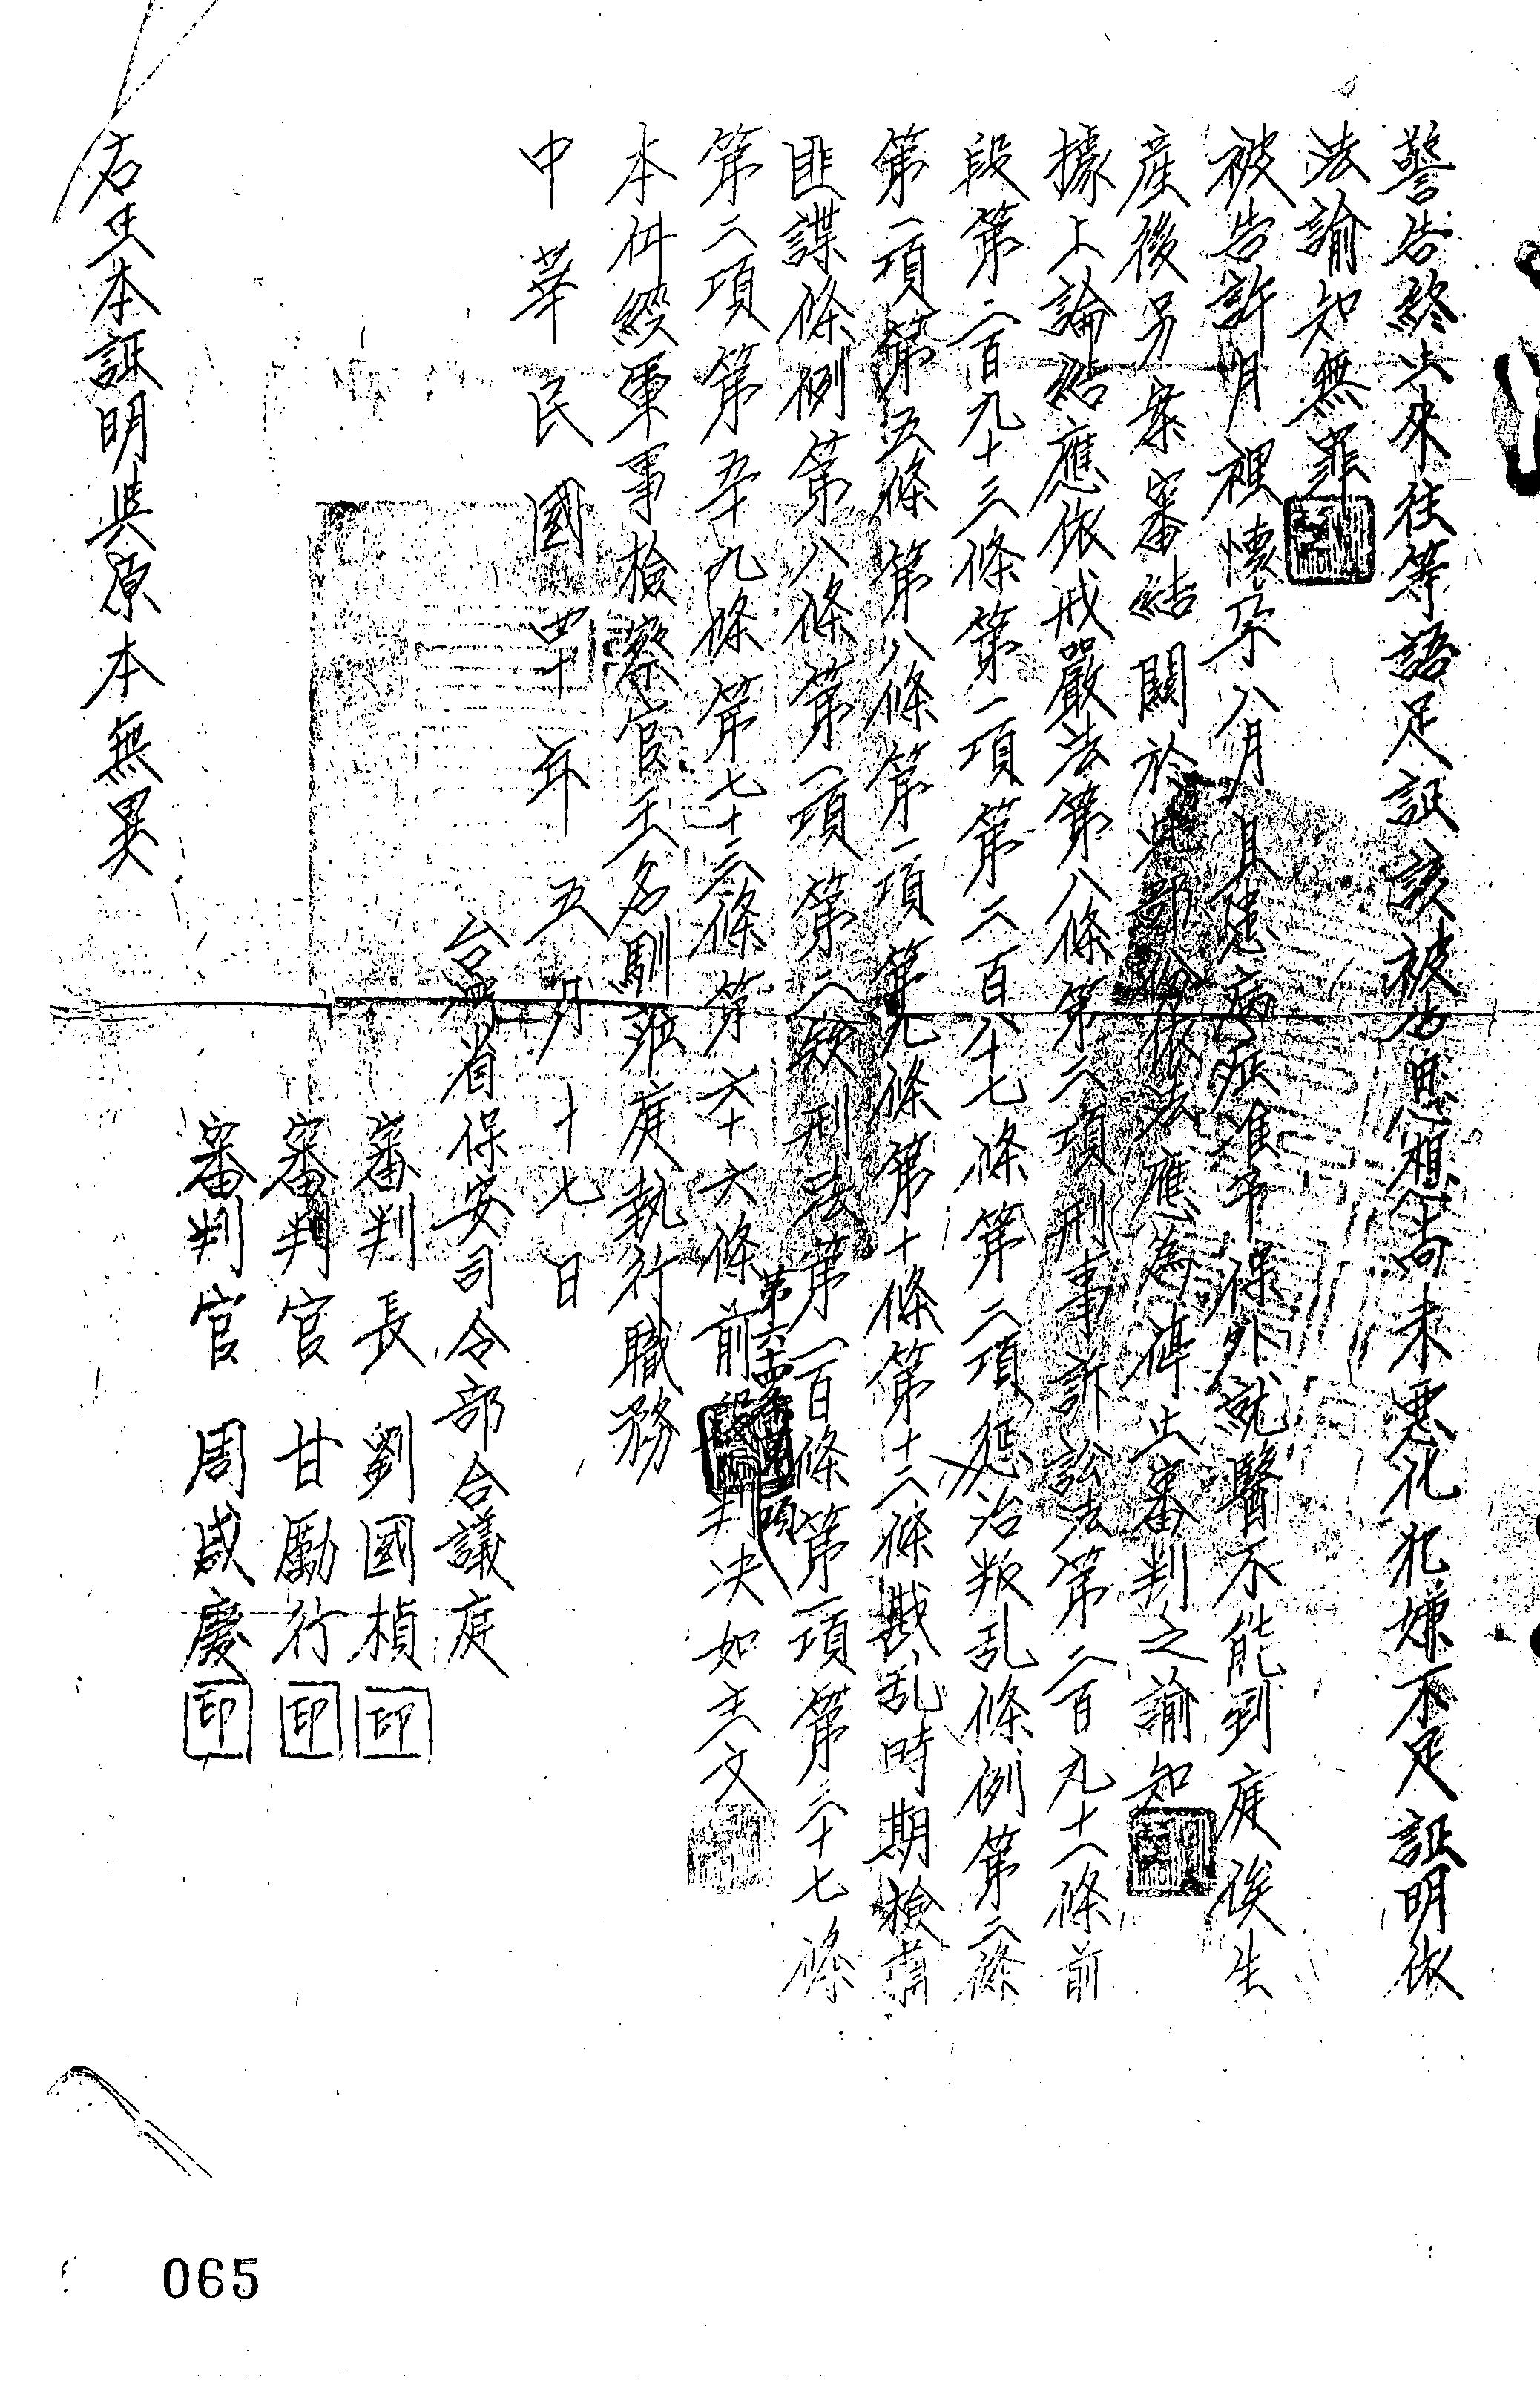 警告終止來往等語足証該被告思想尚未惡化犯嫌不足証明依
法諭知無罪
被告許月裡懷孕八月且患病症准予保外就醫不能到庭俟生
產後另案審結關於此部份依法應為停止審判之諭知
據上論結應依戒嚴法第八條第二項刑事訴訟法第二百九十一條前
段第二百九十三條第一項第二百八十七條第二項懲治叛乱條例第二條
第一項第五條第八條第一項第九條第十條第十二條戡乱時期檢肅
匪諜條例第八條第一項第二款刑法第一百條第一項第三十七條
第二項第五十九條第七十三條第六十六條前段第六十四條第二項判決如主文
本件經軍事檢察官王名馴蒞庭執行職務
中華民國四十年五月十七日
台灣省保安司令部合議庭
審判長 劉國楨 印
審判官 甘勵行 印
審判官 周咸慶 印
右正本証明與原本無異
065